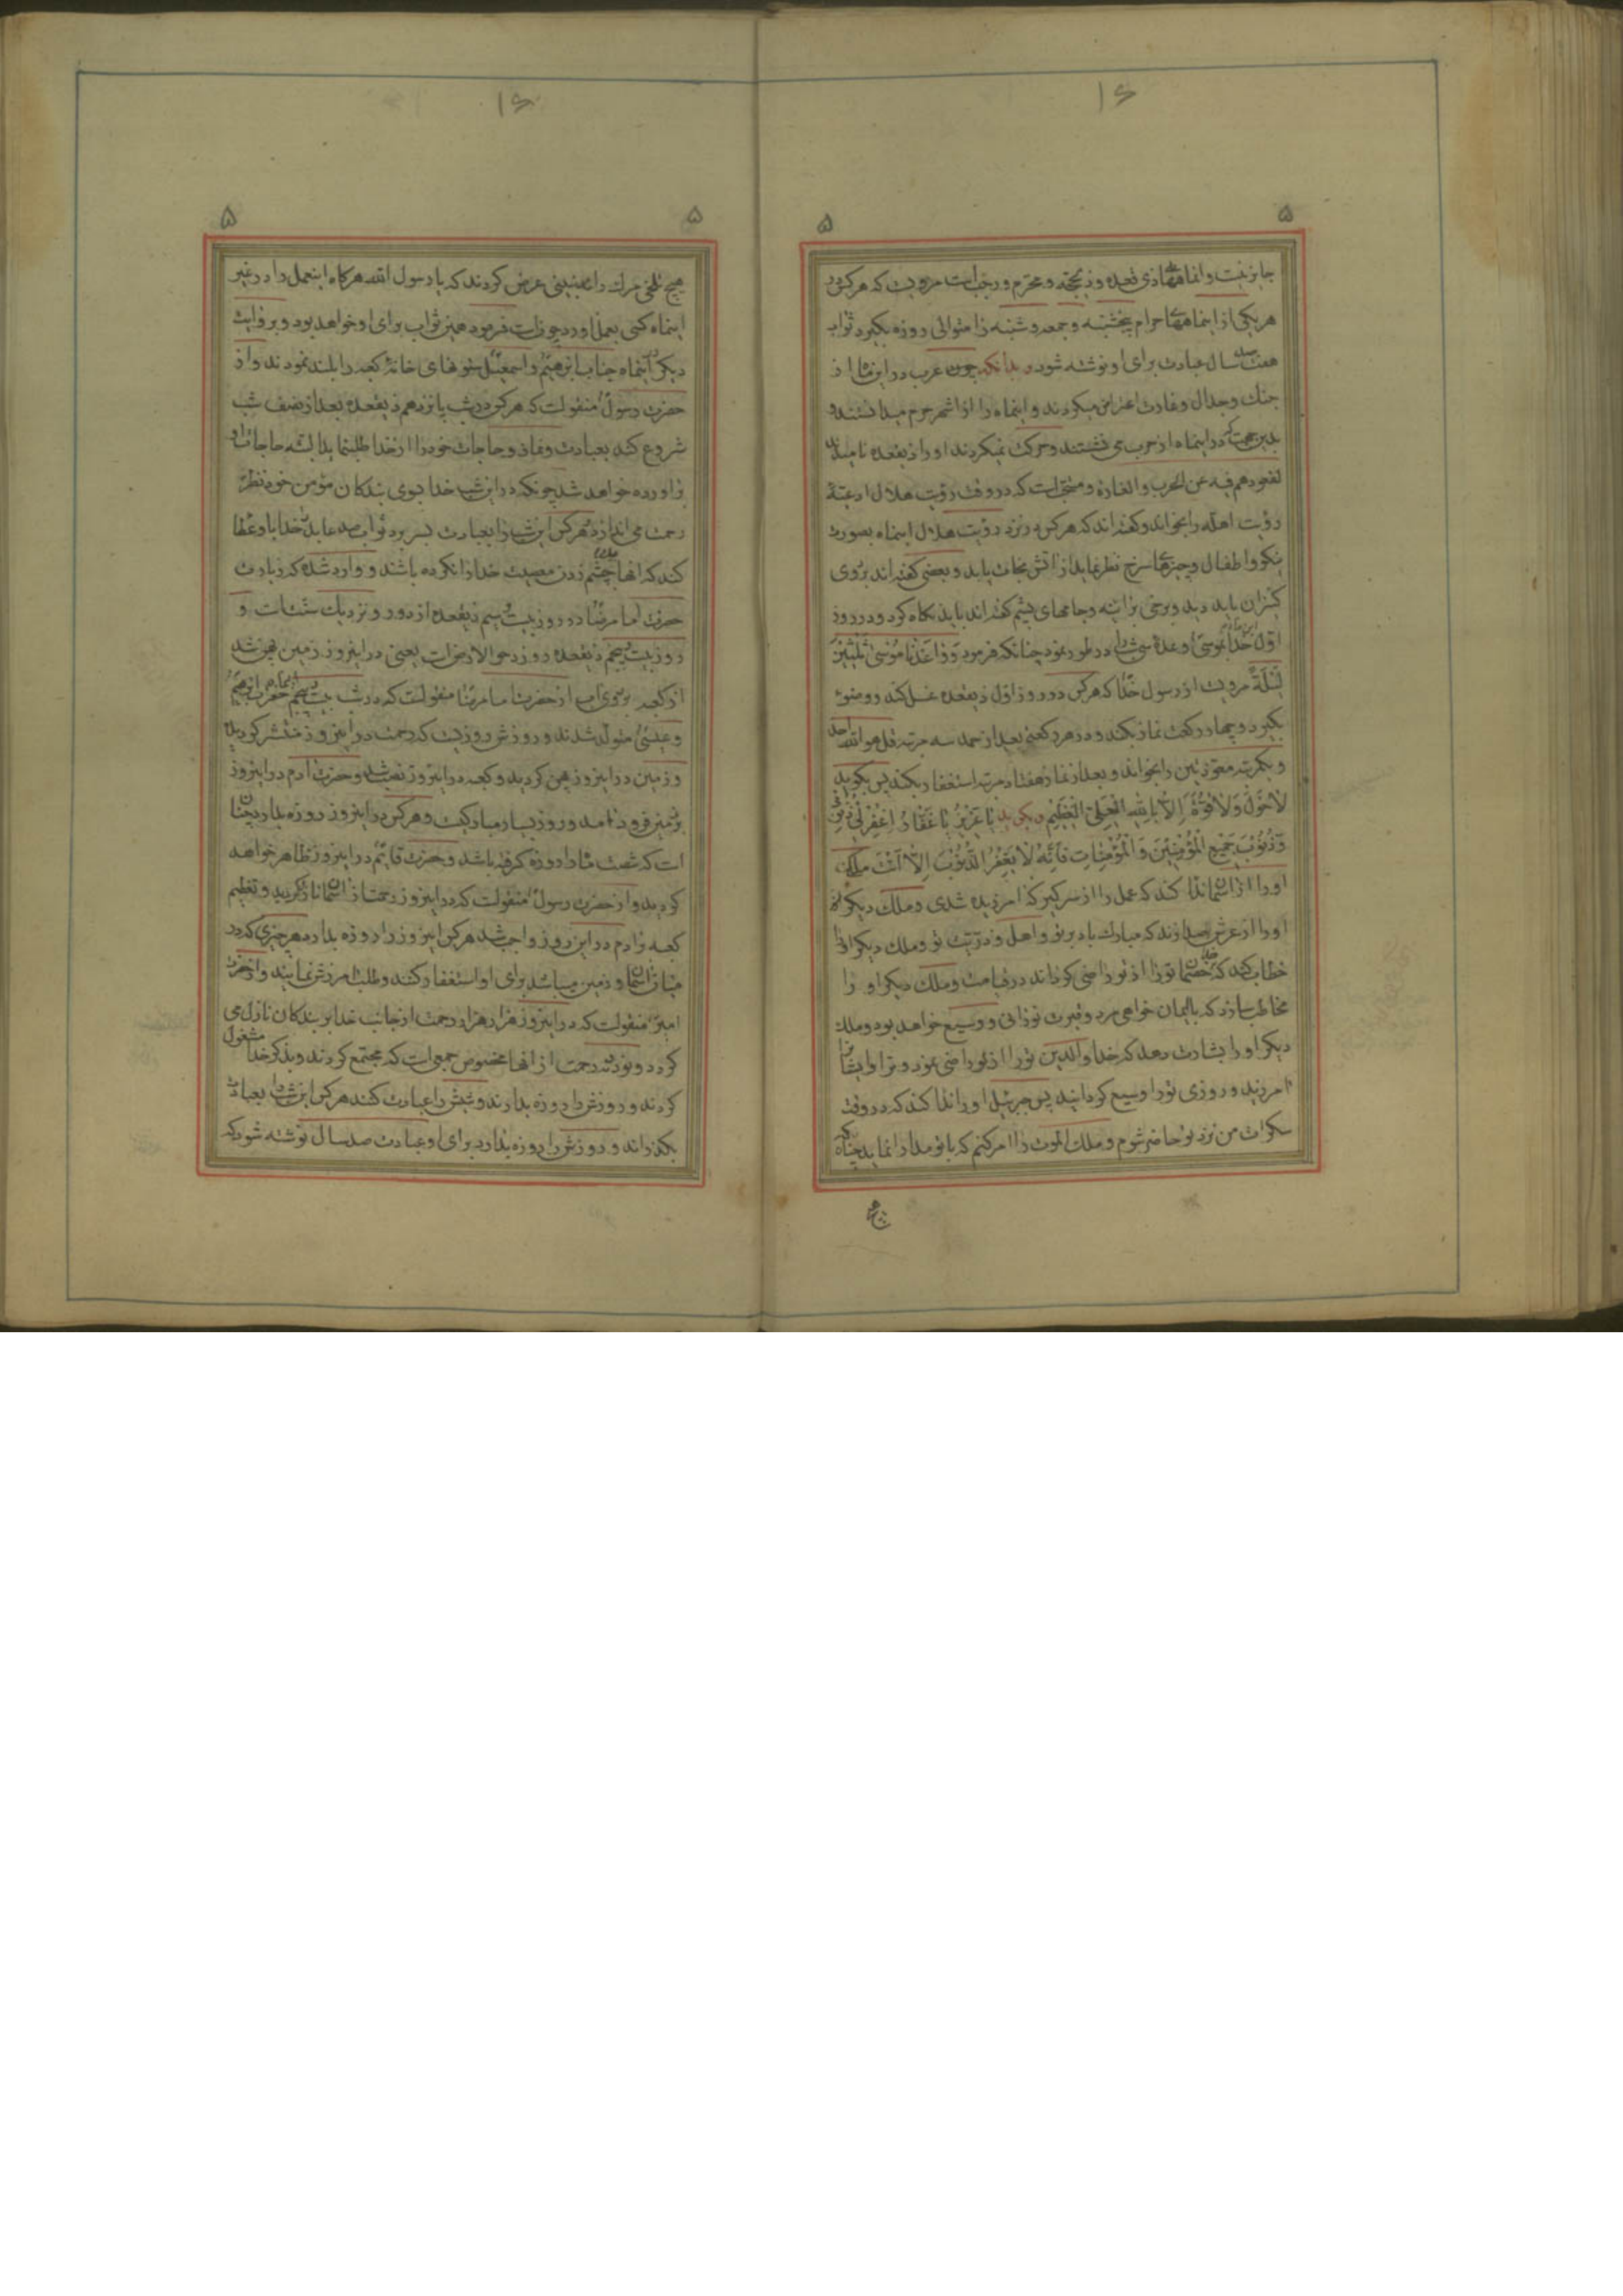 ۱۶
۵ ۵
جایز نیست و انماهها ذی قعده و ذیحجه و محرم و رجب است مرویست که هر کس در
هر یکی از اینماههای حرام پنجشنبه و جمعه و شنبه را متوالی روزه بگیرد ثواب
هفتصد سال عبادت برای او نوشته شود و بدانکه چون عرب در این ماه از
جنك و جدال و غارت اعتراض میکردند و اینماه را از اشهر حرم میدانستند و
بدین جهت که در اینماه از حرب می نشستند و حرکت نمیکردند او را ذیقعده نامیدند
لقعودهم فیه عن الحرب و الغارة و مستحب است که در وقت رؤیت هلال ادعیهٔ
رؤیت اهله را بخواند و گفته اند که هر کس در نزد رؤیت هلال اینماه بصورت
نیکو و اطفال و چیزهای سرخ نظر نماید از اتش نجات یابد و بعضی گفته اند بروی
کنیزان باید دید و برخی برانند و جامهای پشم گفته اند باید نگاه کرد و در روز
اول اینماه خدا بموسی وعدهٔ سی شب را در طور نمود چنانکه فرمود وَوٰاعَدْنٰا مُوسیٰ ثَلٰثینَ
لَیْلَةً مرویست از رسول خدا که هر کس در روز اول ذیقعده غسل کند و وضوء
بگیرد و چهار رکعت نماز بکند و در هر رکعتی بعد از حمد سه مرتبه قل هو الله احد
و یکمرتبه معوذتین را بخواند و بعد از نماز هفتاد مرتبه استغفار بکند پس بگوید
لٰا حَوْلَ وَلٰا قُوَّةَ اِلّٰا بِاللهِ الْعَلِیِّ الْعَظیمِ و بگوید یٰا عَزیزُ یٰا غَفّٰارُ اِغْفِرْ لی ذُنُوبی
وَذُنُوبَ جَمیعِ الْمُؤْمِنینَ وَالْمُؤْمِنٰاتِ فَاِنَّهُ لٰا یَغْفِرُ الذُّنُوبَ اِلّٰا اَنْتَ ملکی
او را از اسمان ندا کند که عمل را از سر گیر که امرزیده شدی و ملك دیگر
او را از عرش صدا زند که مبارك باد بر تو و اهل و ذریت تو و ملك دیگر او را
خطاب کند که خدا خصمای تو را از تو راضی گرداند در قیامت و ملك دیگر او را
مخاطب سازد که باایمان خواهی مرد و قبرت نورانی و وسیع خواهد بود و ملك
دیگر او را بشارت دهد که خدا والدین تو را از تو راضی نمود و ترا و ایشان را
امرزید و روزی تو را وسیع گردانید پس جبرئیل او را ندا کند که در وقت
سکرات من نزد تو حاضر شوم و ملك الموت را امر کنم که با تو مدارا نماید چنانکه
هیچ
۱۶
۵ ۵
هیچ تلخی مرك را نبینی عرض کردند که یا رسول الله هرگاه اینعمل را در غیر
اینماه کسی بعمل اورد چونست فرمود همین ثواب برای او خواهد بود و بروایت
دیگر در اینماه جناب ابرهیم و اسمعیل ستونهای خانهٔ کعبه را بلند نمودند و از
حضرت رسول منقولست که هر کس در شب پانزدهم ذیقعده بعد از نصف شب
شروع کند بعبادت و نماز و حاجات خود را از خدا طلب نماید البته حاجات او
براورده خواهد شد چونکه در این شب خدا بسوی بندگان مؤمن خود نظر
رحمت می اندازد و هر کس این شب را بعبادت بسر برد ثواب صد عابد خدا باو عطا
کند که انها چشم زدن معصیت خدا را نکرده باشند و وارد شده که زیارت
حضرت امام رضا در روز بیست و سیم ذیقعده از دور و نزدیك سنت است و
روز بیست و پنجم ذیقعده روز دحو الارض است یعنی در اینروز زمین پهن شد
از کعبه بر روی اب از حضرت امام رضا منقولست که در شب بیست و پنجم اینماه حضرت ابرهیم
و عیسی متولد شدند و روزش روزیست که رحمت در اینروز منتشر گردیده
و زمین در اینروز پهن گردید و کعبه در اینروز نصب شد و حضرت ادم در اینروز
بزمین فرود امد و روز بسیار مبارکیست و هر کس در اینروز روزه بدارد چنان
است که شصت ماه را روزه گرفته باشد و حضرت قایم در اینروز ظاهر خواهد
گردید و از حضرت رسول منقولست که در اینروز رحمت از اسمان نازل گردید و تعظیم
کعبه و ادم در این روز واجب شد هر کس اینروز را روزه بدارد هر چیزی که در
میان اسمان و زمین میباشد برای او استغفار کنند و طلب امرزش نمایند و از حضرت
امیر منقولست که در اینروز هزار هزار رحمت از جانب خدا بر بندگان نازل می
گردد و نود و نه رحمت از انها مخصوص جمعی است که مجتمع گردند و بذکر خدا مشغول
گردند و روزش را روزه بدارند و شبش را عبادت کنند هر کس این شب را بعبادت
بگذراند و روزش را روزه بدارد برای او عبادت صد سال نوشته شود که